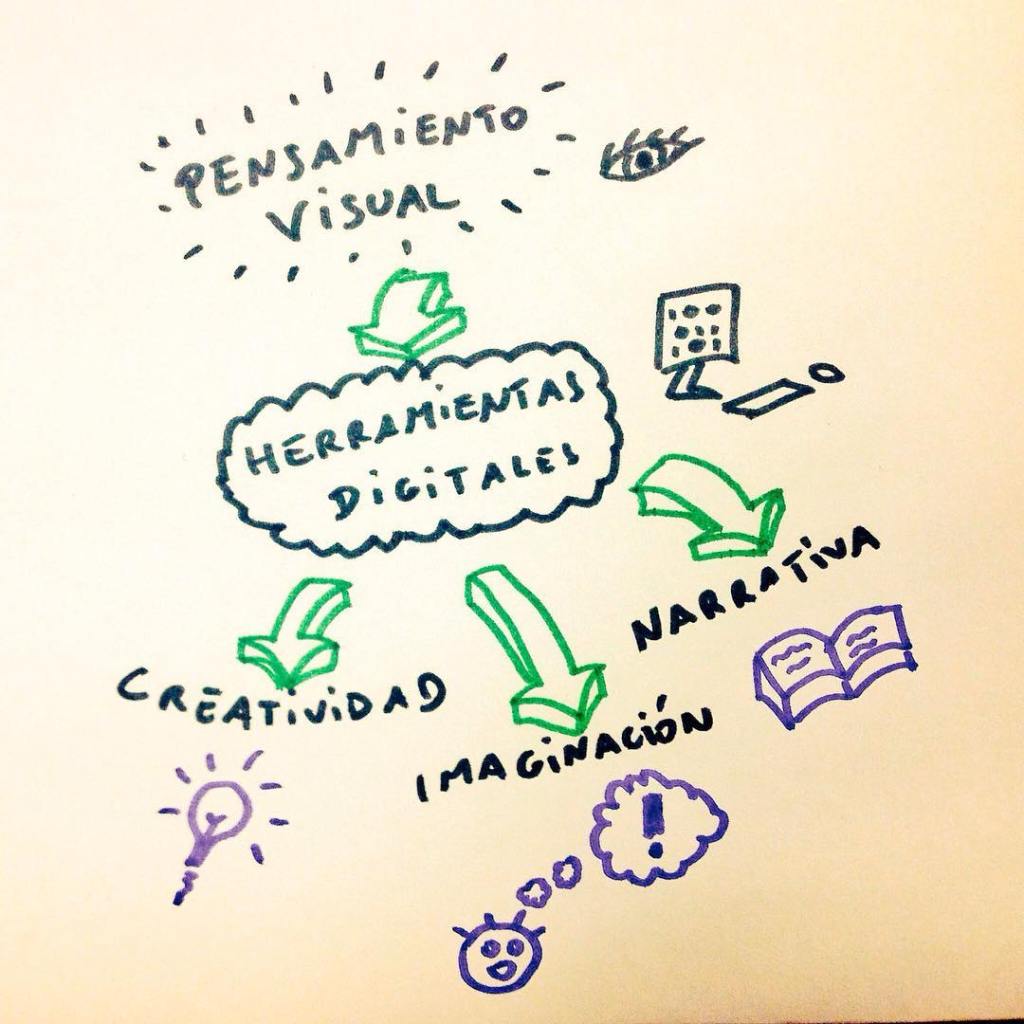 PENSAMiENTO
ViSUAL
HERRAMiENTAS
DiGiTALES
NARRATiVA
CREATiViDAD
iMAGiNACiÓN
!